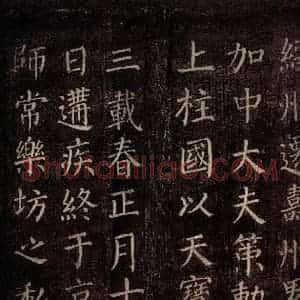 州遷州
加中大夫策勳
上柱國以天寶
三載春正月十
日遘疾終于京
師常樂坊之私